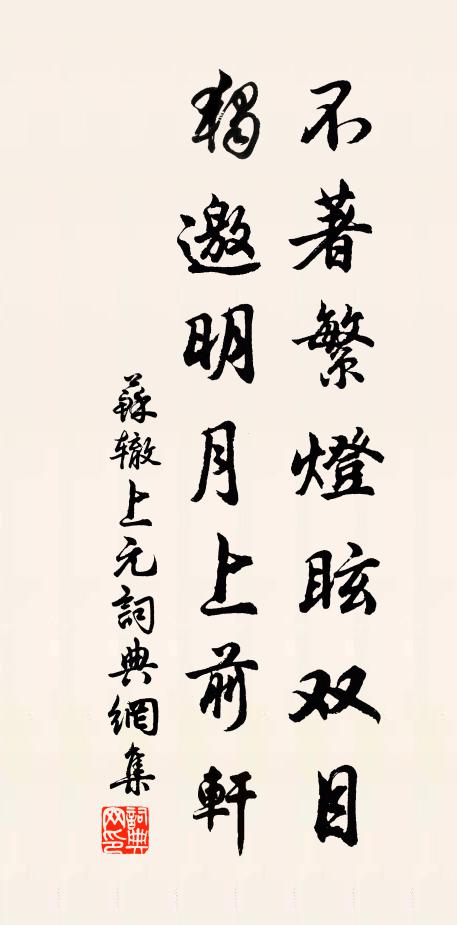 不著繁燈眩双目
獨邀明月上前軒
蘇轍上元詞典網集
詞典网印